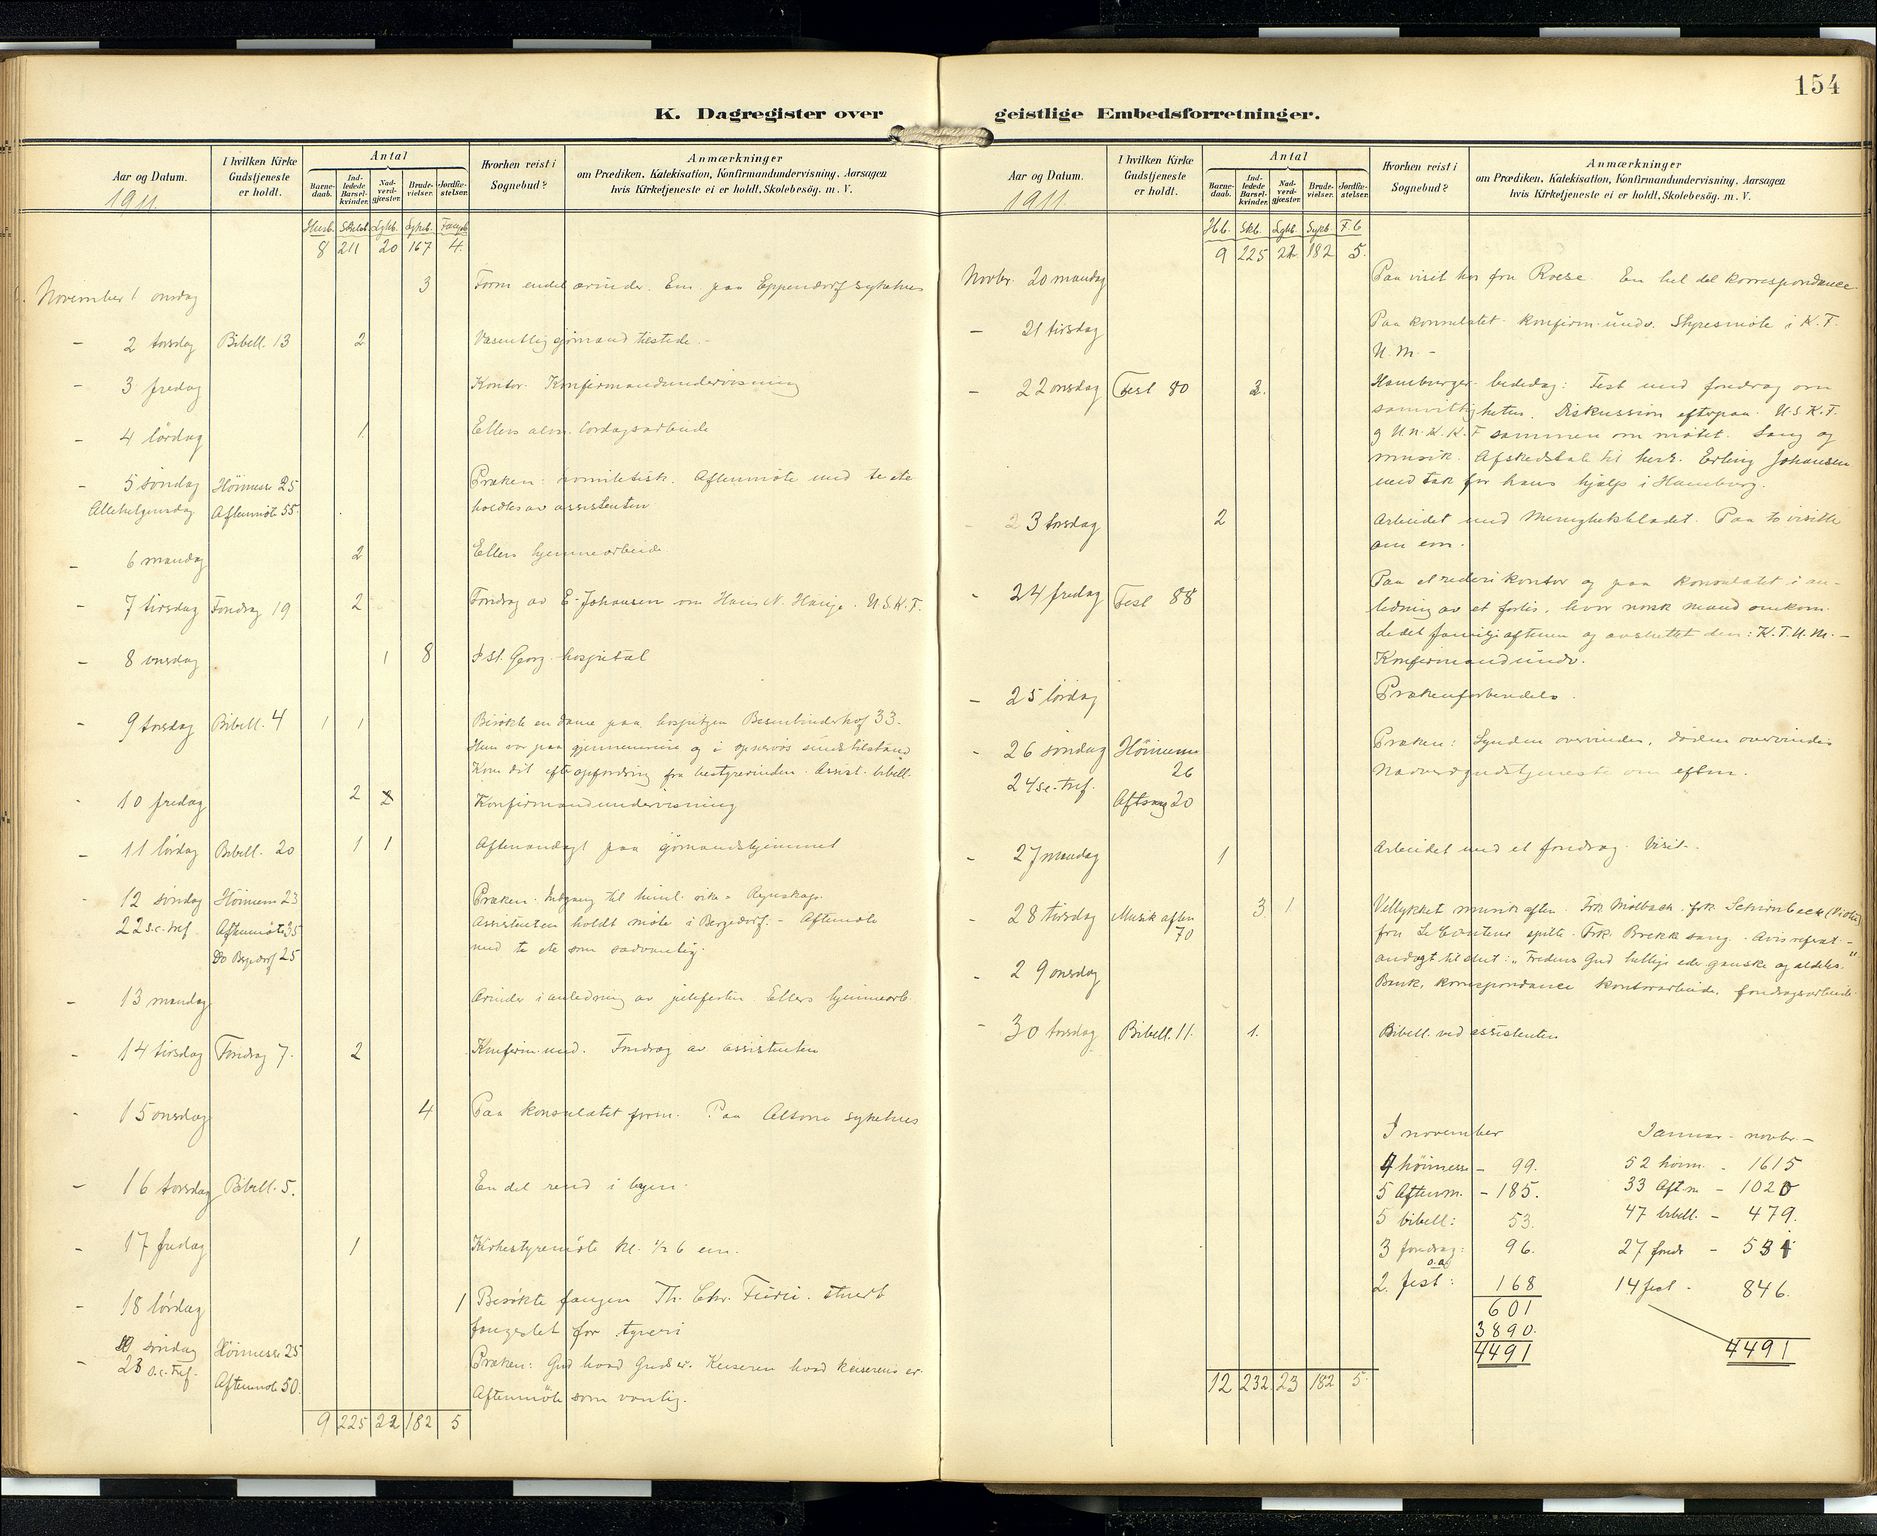 154
K. Dagregister over geistlige Embedsforretninger.
Aar og Datum.
1911
I hvilken Kirke Gudstjeneste er holdt.
Antal
Barnedaab.
Indledede Barselkvinder.
Nadverdgjæster.
Brudevielser.
Jordfæstelser.
Hvorhen reist i Sognebud?
Anmærkninger
om Prædiken, Katekisation, Konfirmandundervisning, Aarsagen
hvis Kirketjeneste ei er holdt, Skolebesög. m. V.
Husb. Skibsb. Lghb. Sykb. Fangeb.
8 211 20 167 4.
November 1 onsdag 3 Form. endel ærinder. Em. paa Eppendorf sykehus
- 2 torsdag Bibell. 13 2 Væsentlig sjømænd tilstede.
- 3 fredag Kontor. Konfirmandundervisning
- 4 lördag 1. Ellers alm. lördagsarbeide
- 5 söndag Höimesse 25 Præken: homiletisk. Aftenmöte med te etc
Allehelgensdag Aftenmöte 55. holdtes av assistenten
- 6 mandag 2 Ellers hjemmearbeide.
- 7 tirsdag Foredrag 19 2 Foredrag av E. Johansen om Hans N. Hauge. U.S.K.F.
- 8 onsdag 1 8 I St. Georg hospital
- 9 torsdag Bibell. 4 1 1 Besökte en dame paa hospitzen Besenbinderhof 33.
Hun var paa gjennemreise og i opnervös sindstilstand
Kom dit efter opfordring fra bestyrerinden. Assist. bibell.
- 10 fredag 2 2 Konfirmandundervisning
- 11 lördag Bibell. 20 1 1 Aftenandagt paa sjömandshjemmet
- 12 söndag Höimesse 23 Præken: Indgang til himl. rike = Regnskap.
22 s. e. tref. Aftenmöte 35 Assistenten holdt möte i Bergedorf. - Aftenmöte
Do Bergedorf 25 med te etc som sædvanlig.
- 13 mandag Ærinder i anledning av julefesten. Ellers hjemmearb.
- 14 tirsdag Foredrag 7. 2 Konfirm. und. Foredrag av assistenten
- 15 onsdag 4 Paa konsulatet form. Paa Altona sykehus
- 16 torsdag Bibell. 5. En del rend i byen.
- 17 fredag 1 Kirkestyremöte kl. 1/2 6 em.
- 18 lördag 1 Besökte fangen Th. Chr. Furu. stuert
fængslet for tyveri
söndag Höimesse 25 Præken: Gud hvad Guds er. Keiseren hvad keiserens er.
- 23 s. e. Tref. Aftenmöte 50. Aftenmöte som vanlig.
9 225 22 182 5
Aar og Datum.
1911.
I hvilken Kirke Gudstjeneste er holdt.
Antal
Barnedaab.
Indledede Barselkvinder.
Nadverdgjæster.
Brudevielser.
Jordfæstelser.
Hvorhen reist i Sognebud?
Anmærkninger
om Prædiken, Katekisation, Konfirmandundervisning, Aarsagen
hvis Kirketjeneste ei er holdt, Skolebesög. m. V.
Hb. Skb. Lghb. Sykb. F.b
9 225 22 182 5.
Novbr. 20 mandag Paa visit hos fru Roese. En hel del korrespondance.
- 21 tirsdag Paa konsulatet. Konfirm. underv. Styresmöte i K.F.
U.M. -
- 22 onsdag Fest 80 2. Hamburger-bededag: Fest med foredrag om
samvittigheten. Diskussion efterpaa. U.S.K.F.
og U.n.K.K.F sammen om mötet. Sang og
musik. Afskedstale til herr. Erling Johansen
med tak for hans hjælp i Hamburg.
23 torsdag 2 Arbeidet med Menighetsbladet. Paa to visitter
om em.
- 24 fredag Fest 88 Paa et rederikontor og paa konsulatet i an-
ledning av et forlis, hvor norsk mand omkom.
Ledet familjeaftenen og avsluttet den: K.F.U.M. -
Konfirmandundv.
- 25 lördag Prækenforberedels.
- 26 söndag Höimesse 26 Præken: Synden overvindes, döden overvindes
24 s. e. tref. Aftsang 20 Nadverdgudstjeneste om eftm.
- 27 mandag 1 Arbeidet med et foredrag. Visit.
- 28 tirsdag Musikaften 70 3 1 Vellykket musikaften. Frk. Mölbach. frk. Schirnbeck (Violin)
fru Le Couteur spilte. Frk. Brekke sang. Avisreferat. -
andagt tilslut: "Fredens Gud hellige eder ganske og aldeles."
- 29 onsdag Bank, korrespondance kontorarbeide, foredragsarbeide.
- 30 torsdag Bibell. 11. 1. Bibell. ved assistenten
I november
4 höimesse - 99.
5 Aftenm. - 185.
5 bibell: 53.
3 foredrag: 96.
o.a.
2. fest: 168
601
3890.
4491
Januar - novbr. -
52 höim. - 1615
33 Aft.m - 1020
47 bibell. - 479.
27 foredr - 531
14 fest - 846.
4491
12 232 23 182 5.